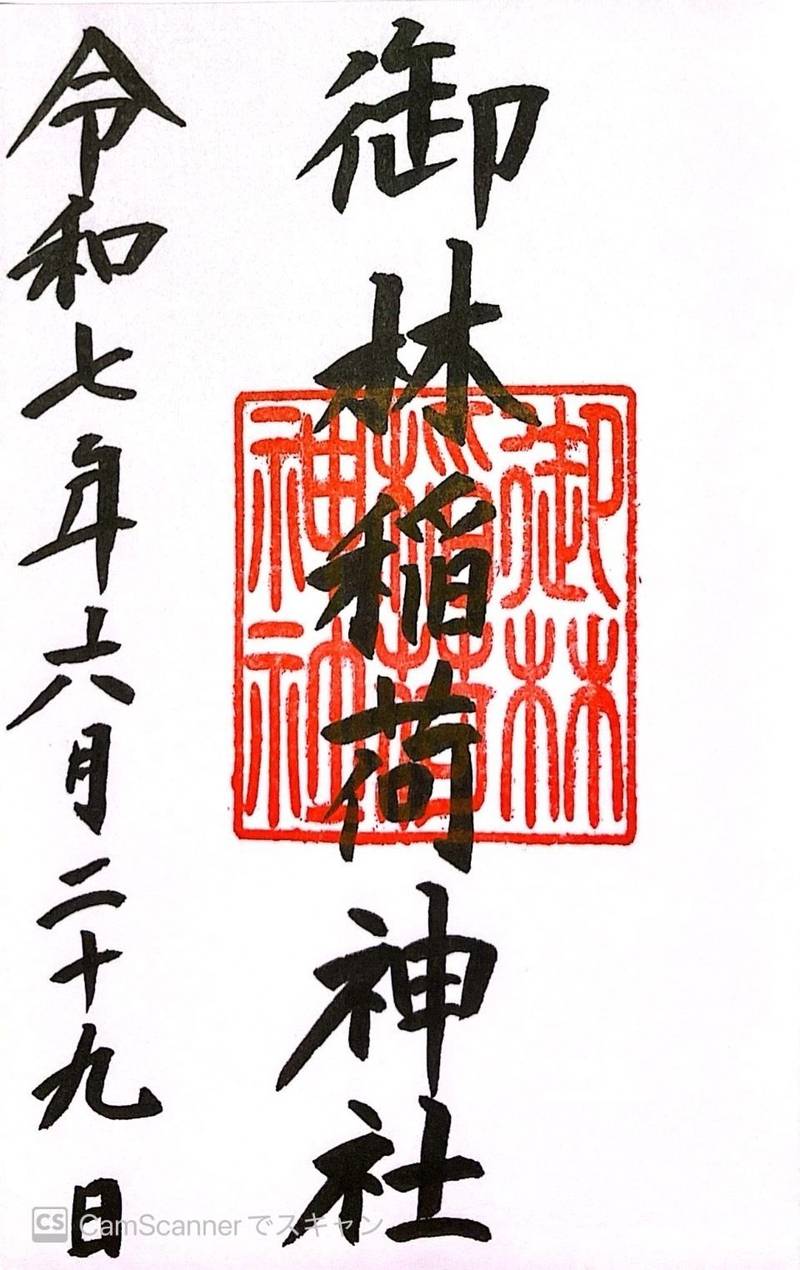 御林稲荷神社
御林
稲荷
神社
令和七年六月二十九日
CS CamScannerでスキャン